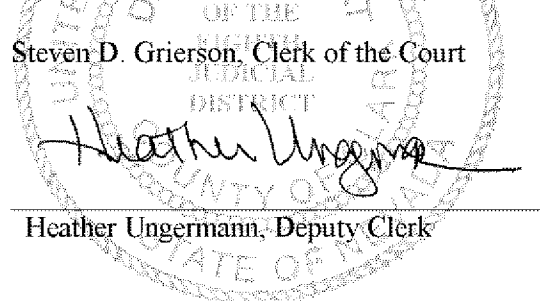 OF THE
EIGHTH
JUDICIAL
DISTRICT
Steven D. Grierson, Clerk of the Court
Heather Ungermann
Heather Ungermann, Deputy Clerk
COUNTY OF
STATE OF NEVADA